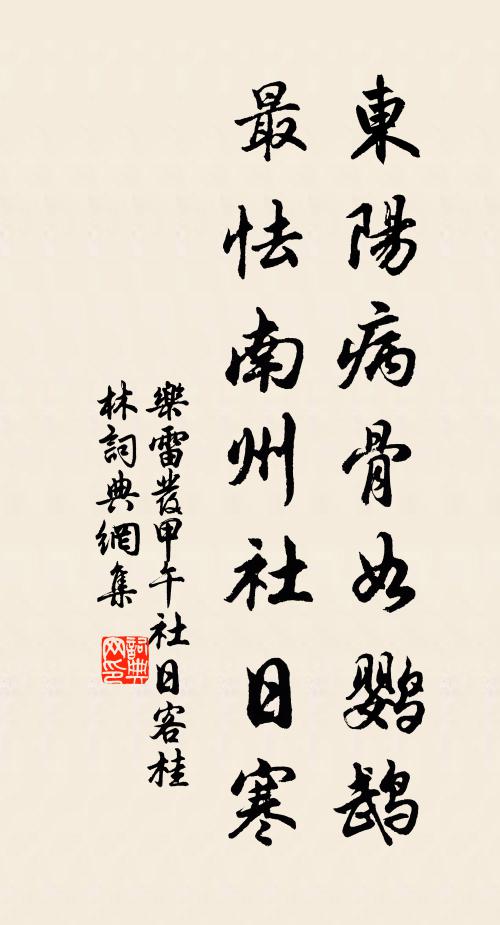 東陽病骨如鸚鵡
最怯南州社日寒
樂雷發甲午社日客桂
林詞典網集
詞典網印